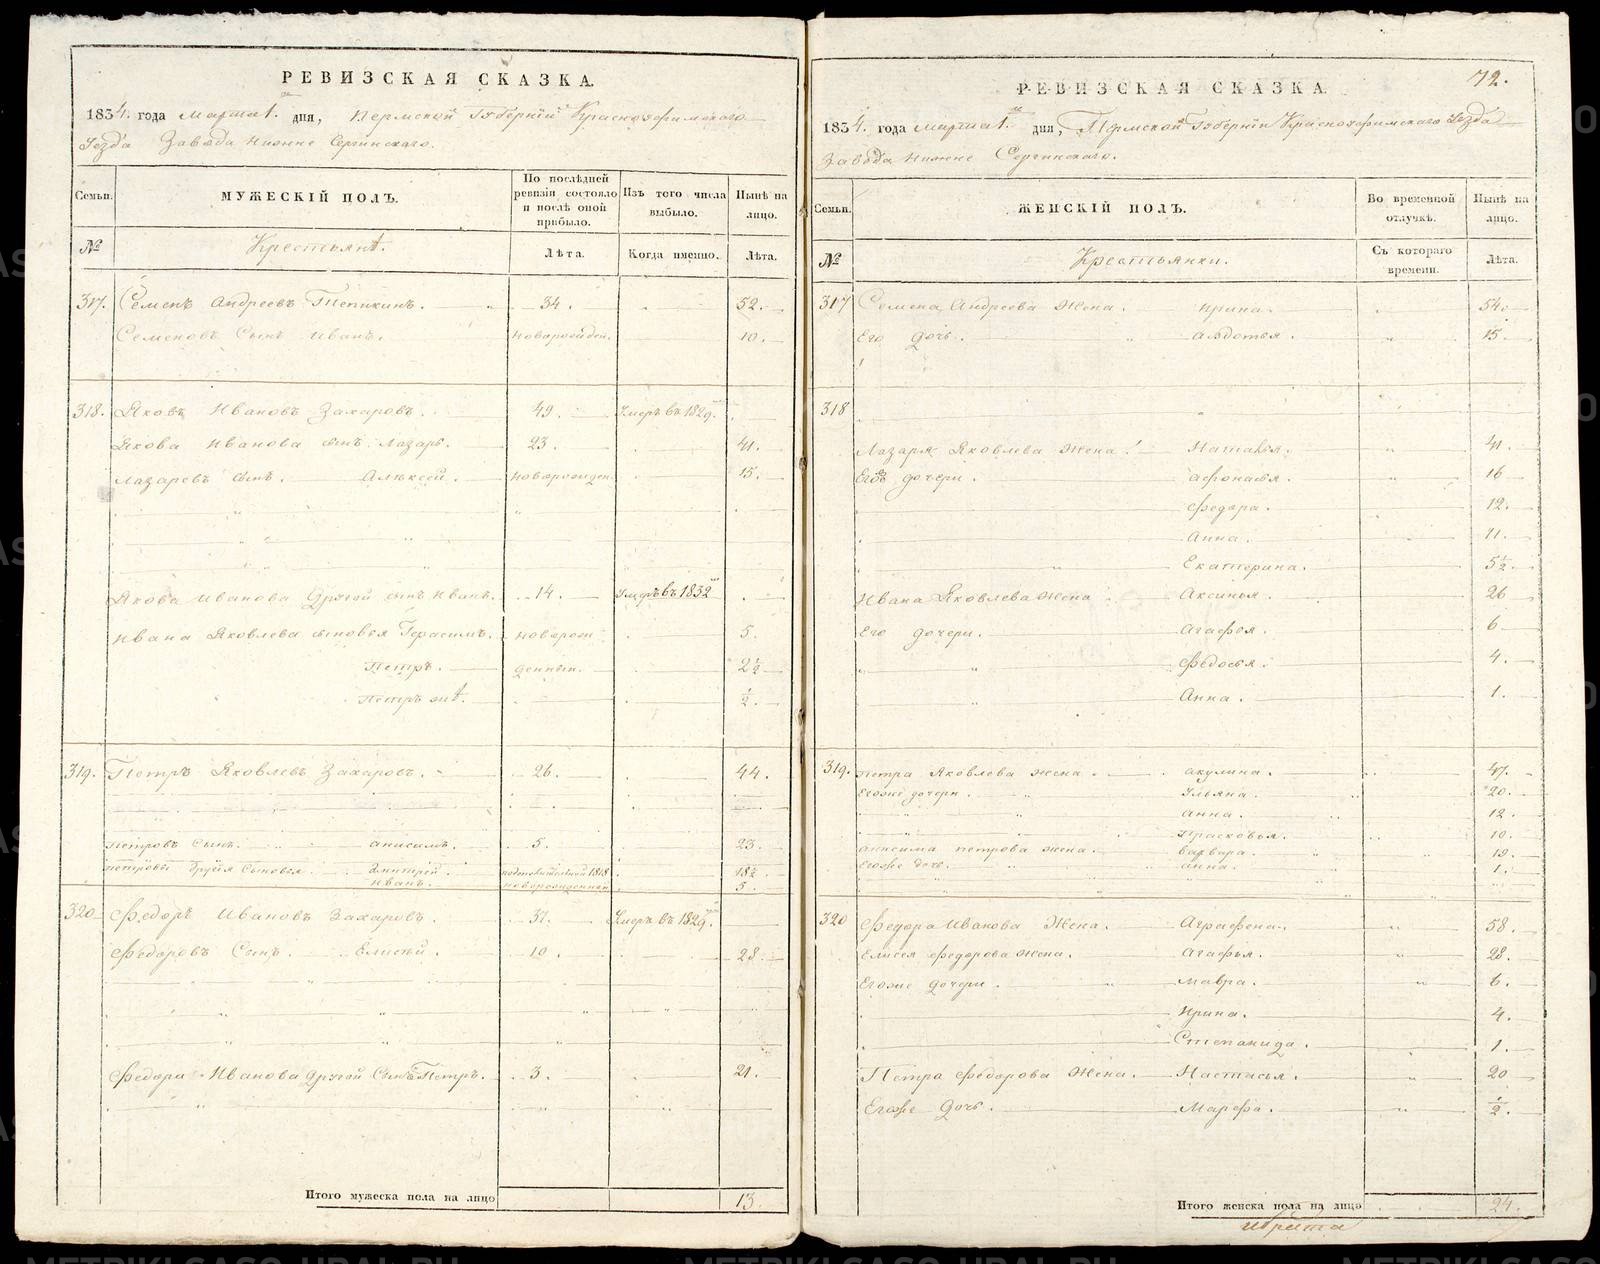 РЕВИЗСКАЯ СКАЗКА.
1834. года марта 1. дня, Пермской Губернии Красноуфимскаго
Уезда Завода Нижне Сергинскаго.
Семьи. МУЖЕСКІЙ ПОЛЪ. По послѣдней ревизіи состояло и послѣ оной прибыло. Изъ того числа выбыло. Нынѣ на лицо.
№ Крестьянѣ. Лѣта. Когда именно. Лѣта.
317. Семенъ Андреевъ 34. 52.
Семеновъ Сынъ Иванъ. новорожден. 10.
318. Яковъ Ивановъ Захаровъ. 49. Умеръ въ 1829.
Якова Иванова сынъ Лазарь. 23. 41.
Лазаревъ сынъ. Алѣксей. новорожден. 15.
Якова Иванова Другой сынъ Иванъ. 14. Умеръ въ 1832
Ивана Яковлева сыновья Герасимъ. новорож 5.
Петръ. денныи. 2½
Петръ жѣ. ½
319. Петръ Яковлевъ Захаровъ. 26. 44.
Петровъ Сынъ. анисимъ. 5. 23.
Петровы другія Сыновья. Дмитрей. 1818 18½
Иванъ. новорожденной 5.
320 Федоръ Ивановъ Захаровъ. 37. Умеръ въ 1829.
Федоровъ Сынъ. Елисѣй. 10. 28.
Федора Иванова другой Сынъ Петръ. 3. 21.
Итого мужеска пола на лицо 13.
72.
РЕВИЗСКАЯ СКАЗКА
1834. года марта 1. дня, Пермской Губернии Красноуфимскаго Уезда
Завода Нижне Сергинскаго.
Семьи. ЖЕНСКІЙ ПОЛЪ. Во временной отлучкѣ. Нынѣ на лицо.
№ Крестьянки. Съ котораго времени. Лѣта.
317 Семена Андреева Жена. Ирина. 54.
Его дочь. авдотья. 15.
318
Лазаря Яковлева Жена. Наталья. 41.
Его дочери. афонасья. 16
Федора. 12.
Анна. 11.
Екатерина. 5½.
Ивана Яковлева Жена Аксинья. 26
Его дочери. Агафья. 6
Федосья. 4.
Анна. 1.
319. Петра Яковлева жена. акулина. 47.
Егоже дочери. Ульяна. 20.
анна. 12.
Прасковья. 10.
анисима петрова жена. варвара. 19.
Егоже дочь. анна. 1.
320 Федора Иванова Жена. Аграфена. 58.
Елисея федорова жена. Агафья. 28.
Егоже дочери. мавра. 6.
Ирина. 4.
Степанида. 1.
Петра Федорова Жена. Настасья. 20
Егоже Дочь. Марфа. ½.
Итого женска пола на лицо 24.
METRIKI.GASO-URAL.RU